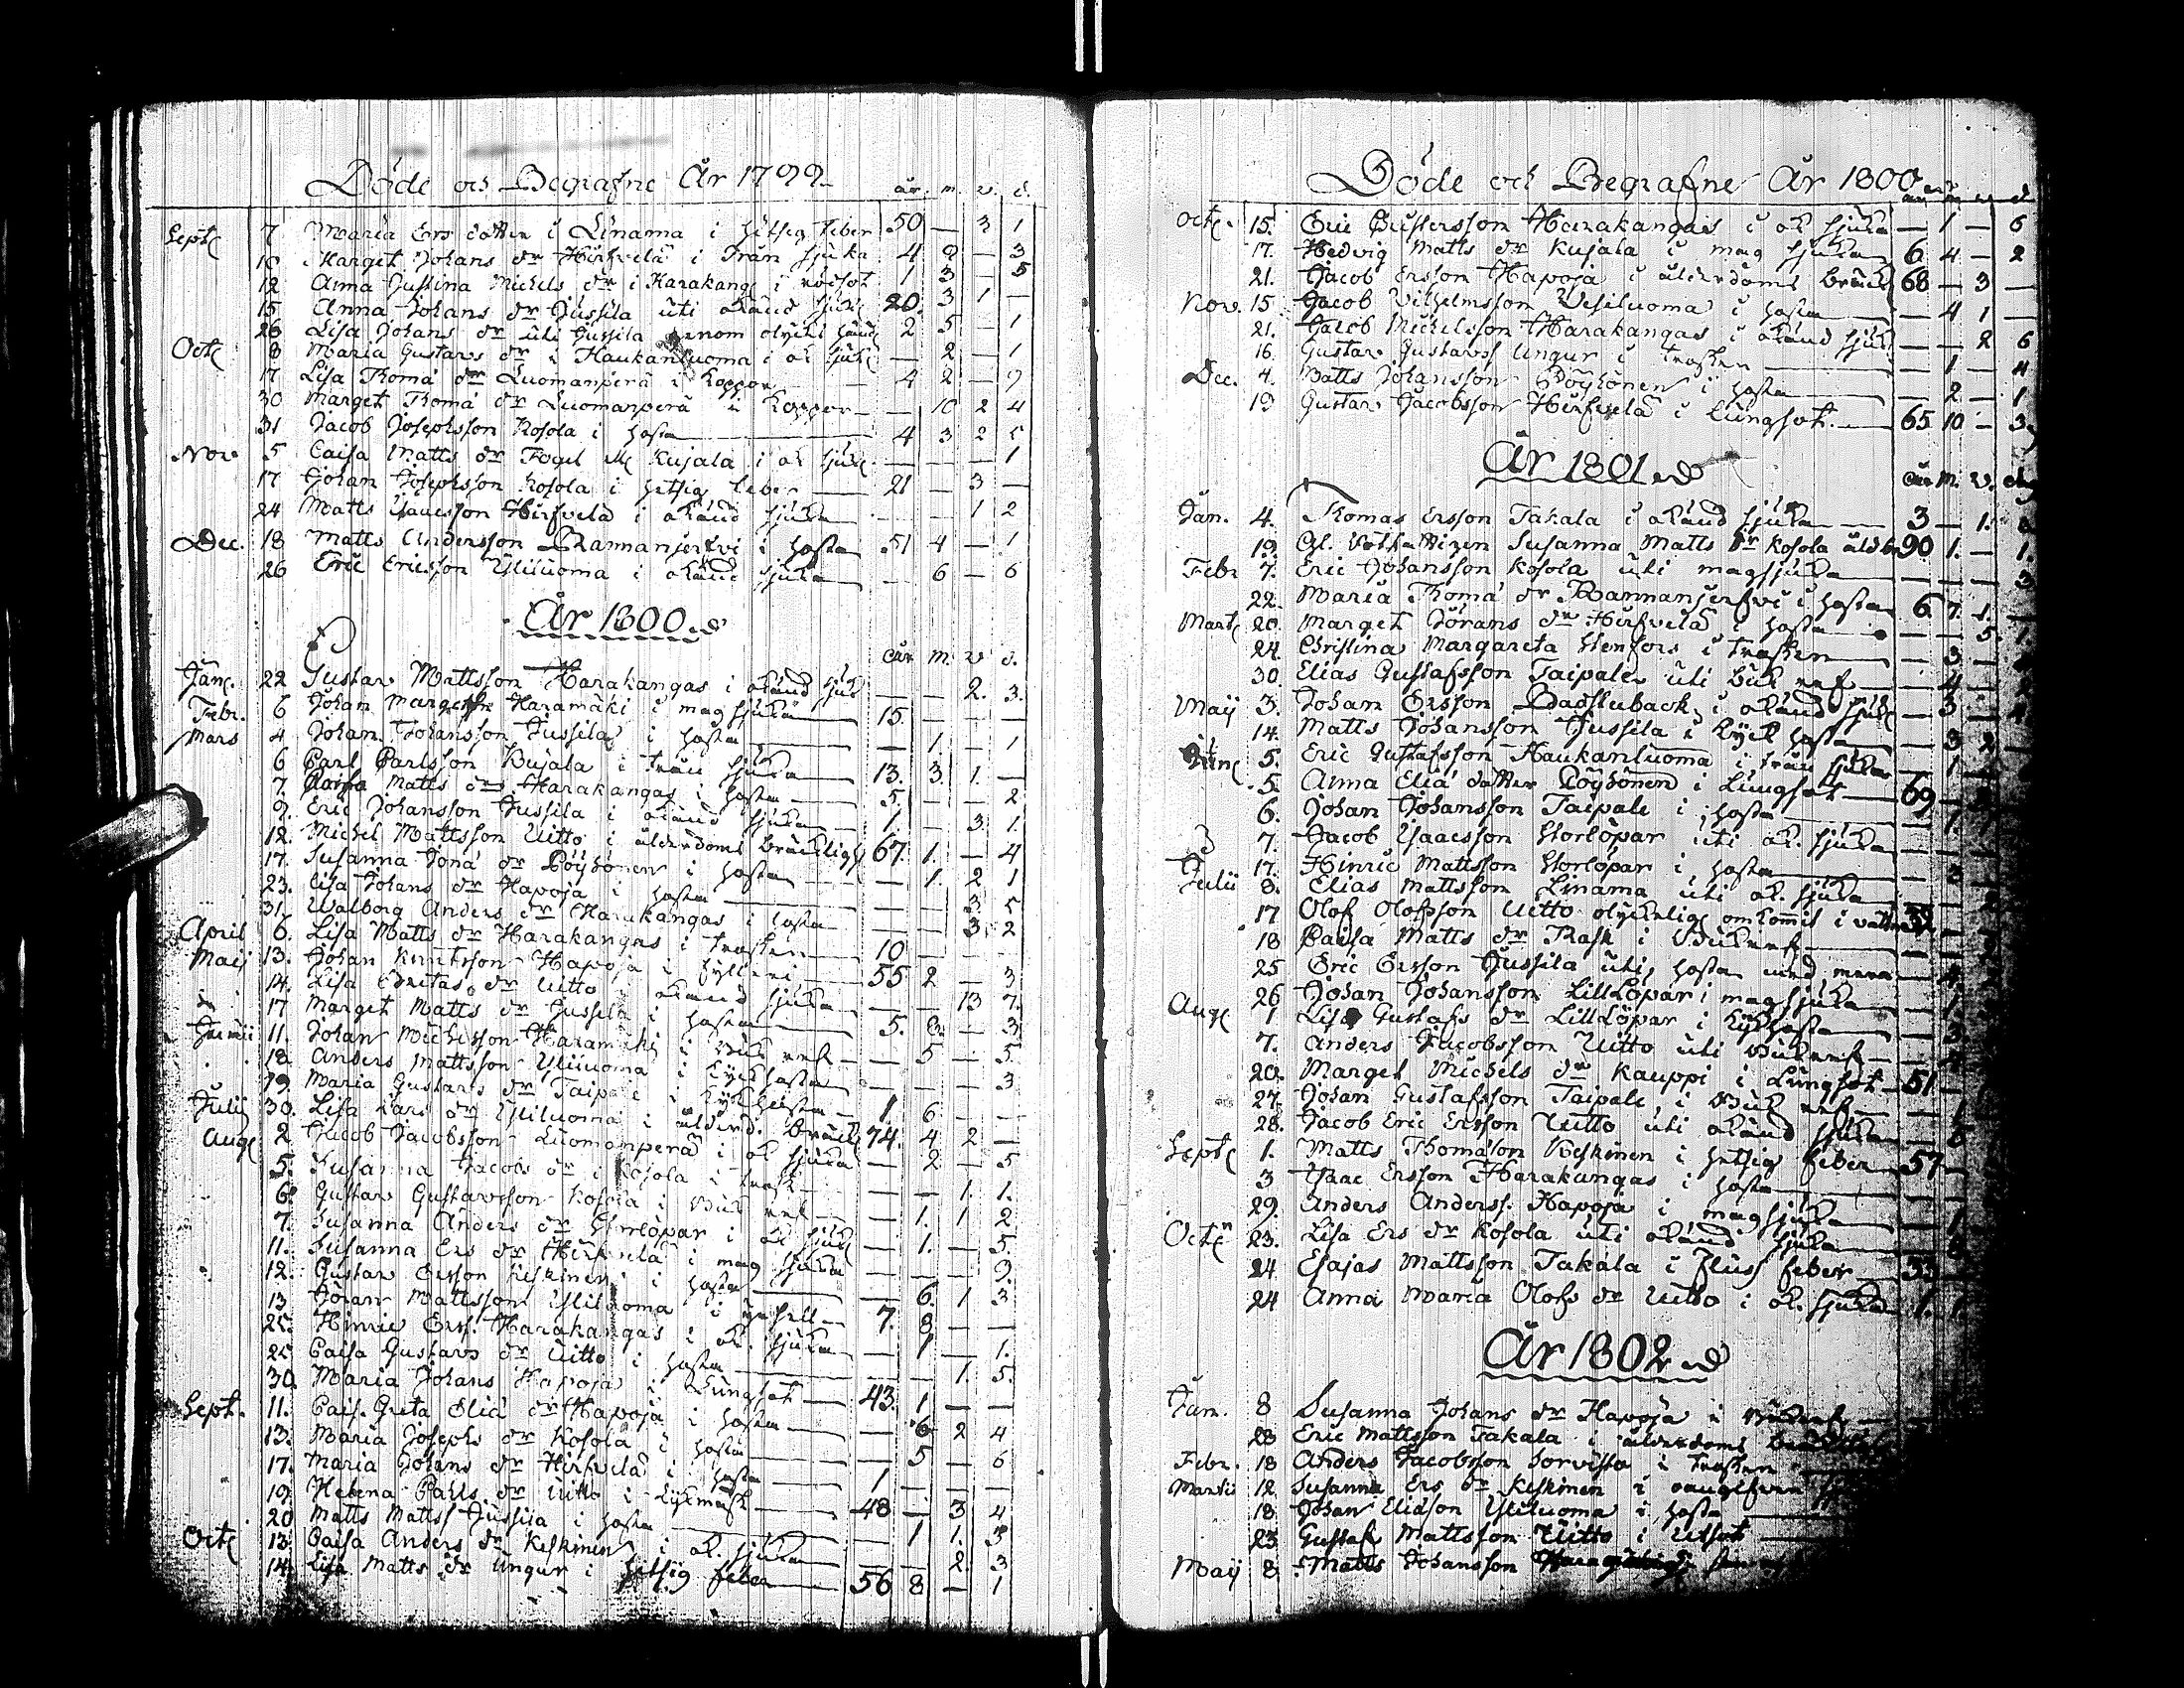 Döde och Begrafne År 1799
år. m. v. d.
Septe 7 Maria Ers dotter i Linama i hetsig feber 50 — 3 1
10 Marget Johans dr Hirfvelä i Trån sjuka 4 9 — 3
12 Anna Justina Michels dr i Harakang i rödsot 1 3 — 5
15 Anna Johans dr Jussila uti okänd sjuk 20 3 1 —
26 Lisa Johans dr uti Jussila genom olyckl händ 2 5 — 1
Octe 8 Maria Gustavs dr i Haukanluoma i ok sjuk — 2 — 1
17 Lisa Thomä dr Luomanperä i Koppor — 4 2 — 9
30 Marget Thomä dr Luomanperä i Koppor — — 10 2 4
31 Jacob Josephsson Kosola i hosta 4 3 2 5
Nov 5 Caisa Matts dr Fogel Kujala i ok sjuk — — — 1
17 Johan Josephsson Kosola i hetsig feber 21 — 3 —
24 Matts Isacsson Hirfvelä i okänd sjuka — — 1 2
Dec. 18 Matts Andersson Rannanjerfvi i hosta 51 4 — 1
26 Eric Ericsson Yliluoma i okänd sjuka — 6 — 6
År 1800
år m. v d.
Jan. 22 Gustav Mattsson Harakangas i okänd sjuk — — 2. 3.
Febr. 6 Johan Haramäki i mag sjuka 15. — — —
Mars 4 Johan Johansson Jussila i hosta — 1 — 1
6 Carl Carlsson Kujala i Trån sjuka 13. 3. 1. —
7. Caisa Matts dr Harakangas i hosta 5. — — 2
9. Eric Johansson Jussila i okänd sjuka 1. — 3. 1.
12. Michel Mattsson Uitto i ålderdoms bräcklig 67. 1. — 4
17. Susanna Jonä dr Pöyhönen i hosta — 1. 2 1
23. Lisa Johans dr Hapoja i hosta — — 3. 5
31. Walborg Anders dr Harakangas i hosta — — 3. 2
April 6. Lisa Matts dr Harakangas i trasken 10 — — —
Maij 13. Johan Knutsson Hapoja i 55 2 — 3
14. Lisa dr Uitto i okänd sjuka — — 13 7.
17 Marget Matts dr Jussila i hosta 5. 8. — 3
Junii 11. Johan Michelsson Haramäki i Buk ref — 5 — 5.
12. Anders Mattsson Yliluoma i Kyckhosta — — — 3.
19. Maria Gustavs dr Taipale i Kyckhosta 1. 6 — —
Julij 30. Lisa Lars dr Yliluoma i ålderd. bräckl 74. 4 2 —
Aug 2 Jacob Jacobsson Luomanperä i ok sjuka — 2 — 5
5. Susanna Jacobs dr i Kosola i trask — — 1. 1.
6. Gustav Gustavsson Kosola i Buk ref — 1. 1 2
7. Susanna Anders dr Storlöpar i ok sjuk — 1. — 5.
11. Susanna Ers dr Hirfvelä i mag sjuka — — — 9.
12. Gustav Ersson Keskinen i hosta — 6. 1 3.
13. Johan Mattsson Yliluoma i 7. 8. — —
25. Hinric Erss. Harakangas i ok. sjuka — 1 — 1.
25 Caisa Gustavs dr Uitto i hosta — — 1. 5.
30. Maria Johans Hapoja i Lungsot 43. 1 — —
Sept. 11. Cais. Greta Eliä dr Hapoja i hosta — 6 2 4
13. Maria Josephs dr Kosola i hosta — 5 — 6
17. Maria Johans dr Hirfvelä i hosta 1 — — —
19. Helena Carls dr Uitto i 48 — 3 4
20 Matts Matts Jussila i hosta — 1 1. 3
Octe 13. Caisa Anders dr Keskinen i ok. sjuka — — 2. 3
14. Lisa Matts dr Ungur i hetsig feber 56 8 — 1
Döde och Begrafne År 1800
Octe. 15. Eric Gustersson Harakangas i ok sjuka — 1 — 6
17. Hedvig Matts dr Kujala i mag sjukan 6 4 — 2
21. Jacob Ersson Hapoja i ålderdoms bräckl 68 — 3 —
Nov. 15 Jacob Vilhelmsson Vesiluoma i hosta — 4 1 —
21. Jacob Michelsson Harakangas i okänd sjuk — — 2 6
16. Gustav Gustavss Ungur i trasken — 1 — 4
Dec. 4. Matts Johansson Pöyhönen i hosta — 2 — 1
19 Gustav Jacobsson Hirfvelä i Lungsot 65 10 — 3
År 1801
år m. v. d
Jan. 4. Thomas Ersson Takala i okänd sjuka 3 — 1.
19. Susanna Matts dr Kosola 90 1. — 1.
Febr 7. Eric Johansson Kosola uti magsjuka — — — 3
22. Maria Thomä dr Rannanjerfvi i hosta 6 7. 1
Mart 20. Marget Jörans dr Hirfvelä i hosta — — 5. 1.
24. Christina Margareta Stenfors i trasken — 3 —
30. Elias Gustafsson Taipale uti Buk ref — 4
Maij 3. Johan Ersson Badstuback i okänd sjuk — 3 —
14. Matts Johansson Jussila i Kyckhosta — 3 2
Jun 5. Eric Gustafsson Haukanluoma i trån sjuka — 1
5. Anna Eliä dotter Pöyhönen i Lungsot 69
6. Johan Johansson Taipale i hosta — 1.
7. Jacob Isaacsson Storlöpar uti ok. sjuka
17. Hinric Mattsson Storlöpar i hosta
Julii 8. Elias Mattsson Linama uti ok. sjuka
17 Olof Olofsson Uitto olyckelig omkomit i vattn
18 Caisa Matts dr Rask i Bukref
25 Eric Ersson Jussila uti hosta med mera
26 Johan Johansson Lillöpar i magsjuka
Aug 1 Lisa Gustafs dr Lillöpar i Kyckhosta
7. Anders Jacobsson Uitto uti Bukref
20. Marget Michels dr Kauppi i Lungsot 51
27. Johan Gustafsson Taipale i Buk ref
28. Jacob Eric Ersson Uitto uti okänd sjuka
Septe 1. Matts Thomäson Keskinen i hetsig feber 57
3 Isaac Ersson Harakangas i hosta
29. Anders Anderss. Hapoja i magsjuka
Octe 23. Lisa Ers dr Kosola uti okänd sjuka
24 Esajas Mattsson Takala i Fluss feber 33
24 Anna Maria Olofs dr Uitto i ok. sjuka 1.
År 1802
Jan. 8 Susanna Johans dr Hapoja i Bukref
28 Eric Mattsson Takala i ålderdoms
Febr. 18 Anders Jacobsson Sorvisto i trasken
Martii 12 Susanna Ers dr Keskinen i
18. Johan Eliäson Yliluoma i hosta
23 Gustaf Mattsson Uitto i
Maij 8 Matts Johansson